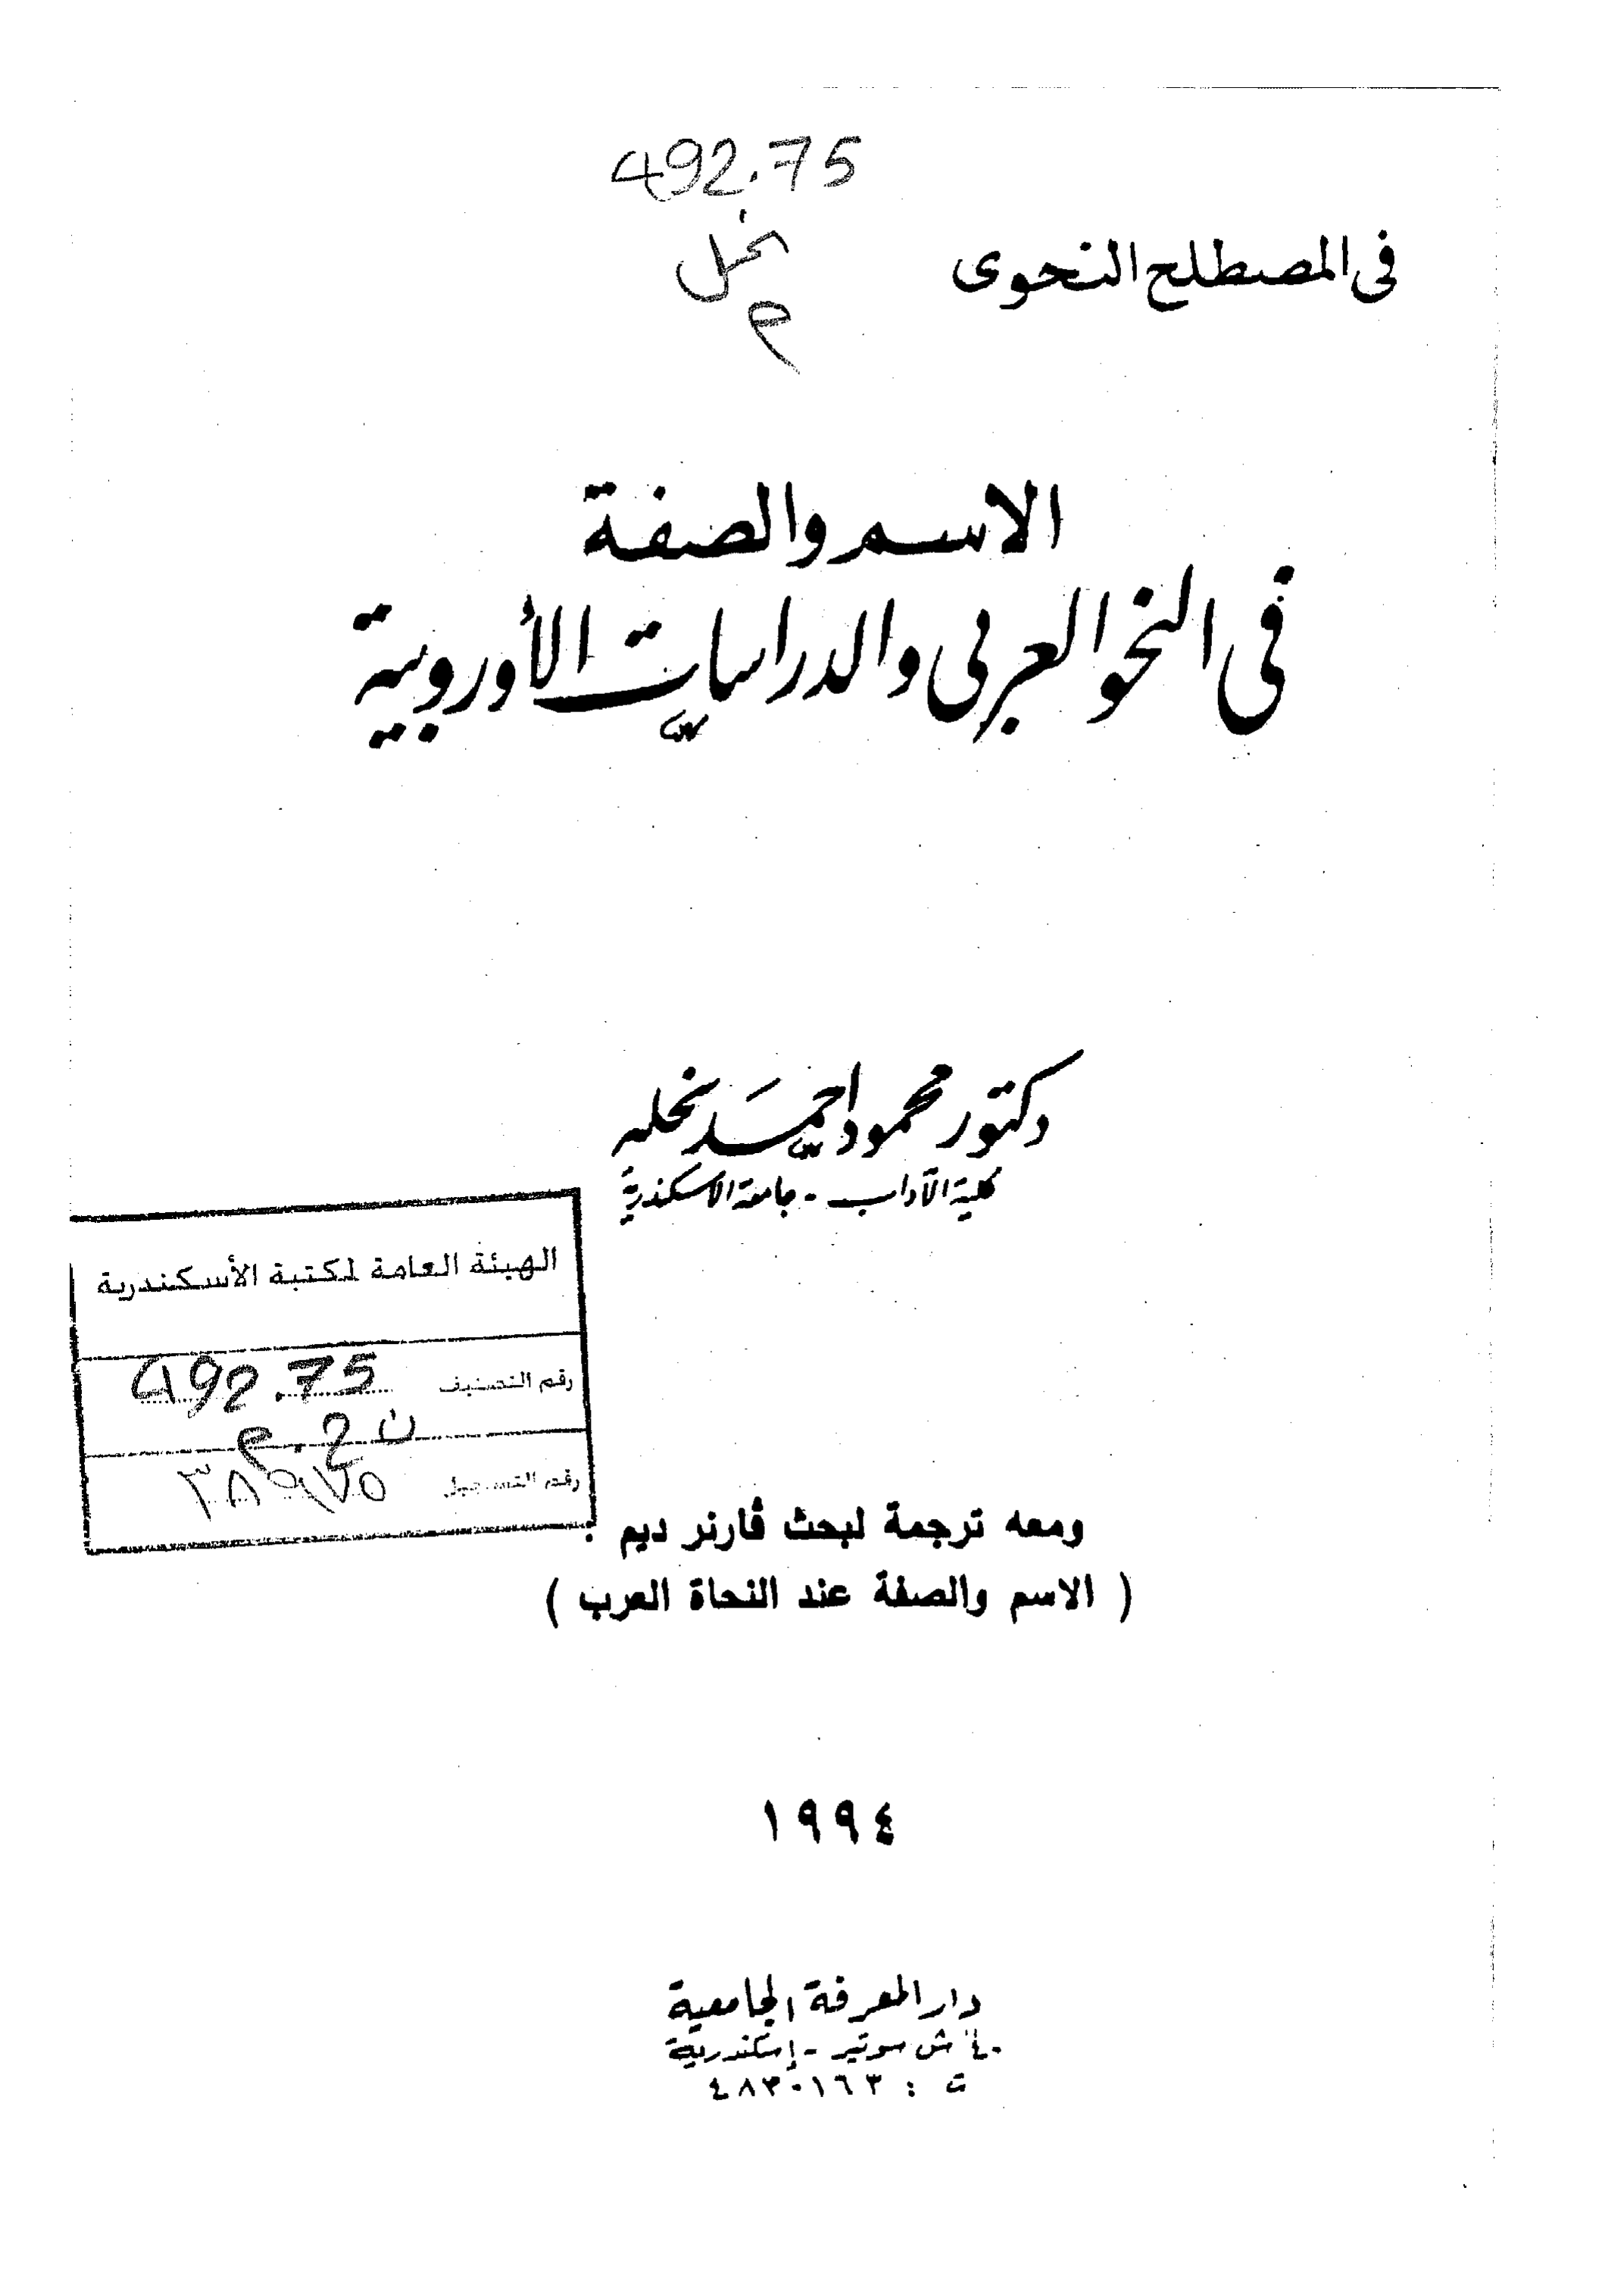 492.75
نخل
م
فى المصطلح النحوى
الاسم والصفة
فى النحو العربى والدراسات الأوروبية
دكتور محمود احمد نحله
كلية الآداب - جامعة الاسكندرية
الهيئة العامة لمكتبة الأسكندرية
رقم التصنيف 492.75
رقم التسجيل ٣٨٩٧٥
ومعه ترجمة لبحث ڤارنر ديم :
( الاسم والصفة عند النحاة العرب )
١٩٩٤
دار المعرفة الجامعية
٤٠ ش سوتير - إسكندرية
ت : ٤٨٣٠١٦٣